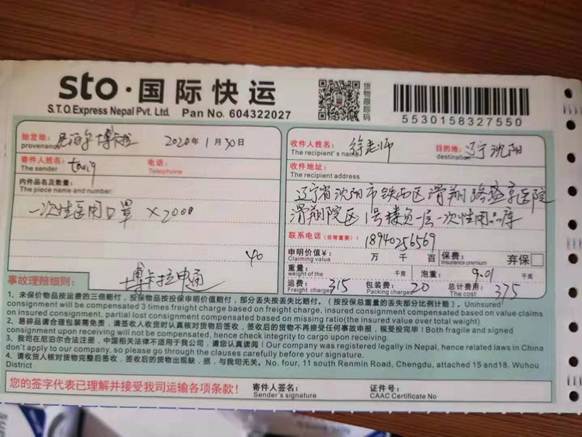 sto·国际快运
S.T.O.Express Nepal Pvt. Ltd. Pan No. 604322027
货物跟踪码
5530158327550
始发地: 尼泊尔 博卡拉 2020年1月30日
provenance
寄件人姓名: 电话:
The sender Telephone
内件品名及数量:
The piece name and number
一次性医用口罩 ×2000
40
博卡拉申通
收件人姓名: 徐老师 目的地: 辽宁沈阳
The recipient's name destination
收件地址
The recipient address
辽宁省沈阳市铁西区滑翔路盛京医院
滑翔院区1号楼负一层一次性用品库
联系电话: 18940256569
申明价值¥: 万 千 百 元 保价 弃保
Claiming value Insurance
重量: 千克 泡重: 9.01 千克
weight of the
运费: 315 包装费: 20 总计费用: 375
Freight charge Packing The cost
事故理赔细则:
1、未保价物品按运费的三倍赔付,投保物品按投保申明价值赔付,部分丢失按丢失比赔付。(按投保总重量的丢失部分比例计算)。Uninsured
consignment will be compensated 3 times freight charge based on freight charge, insured consignment compensated based on value claims
on insured consignment, partial lost consignment compensated based on missing ratio(the insured value over total weight)
2、易碎品请合理包装需免责,请签收人收货时认真核对货物后签收,签收后的货物不再接受任何事故申报,概受投完毕!Both fragile and signed
consignment upon receiving will not be compensated, hence check integrity to cargo upon receiving.
3、我司在尼泊尔合法注册,中国相关法律不适用于我公司,请您认真阅读!Our company was registered legally in Nepal, hence related laws in China
don't apply to our company, so please go through the clauses carefully before your signature.
4、请收货人核对货物完整后签收,签收后货物出现缺,损,与我司无关。No. four, 11 south Renmin Road, Chengdu, attached 15and18. Wuhou
District
您的签字代表已理解并接受我司运输各项条款! 寄件人签名: 证件号:
Sender's signature CAAC Certificate No